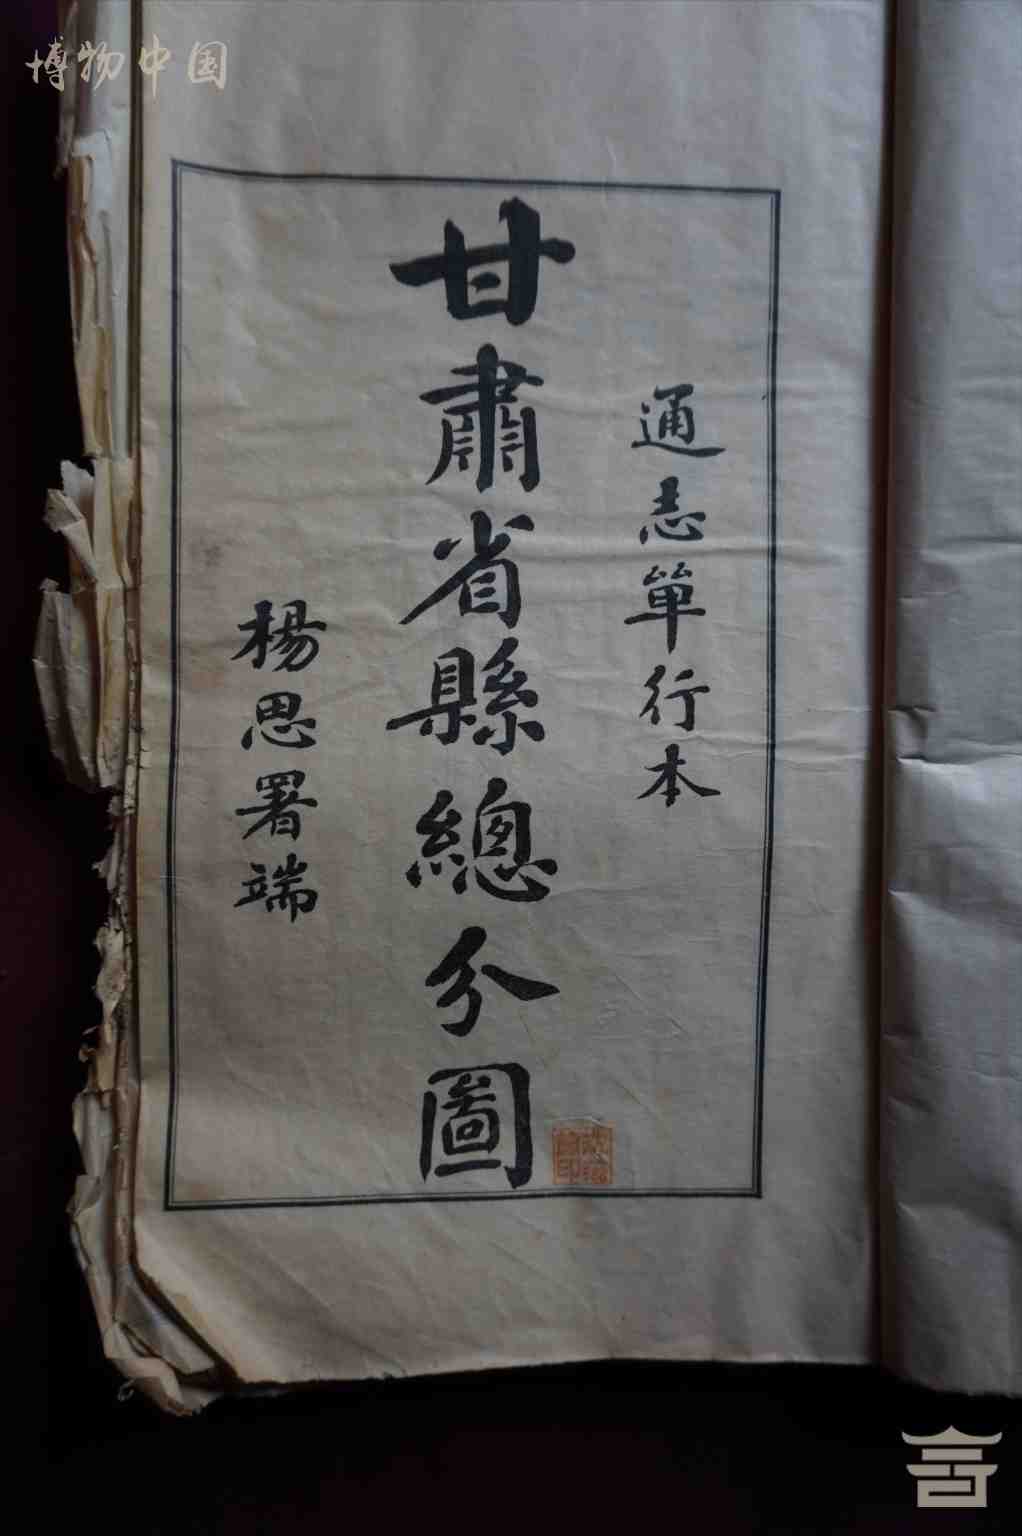 博物中国
通志單行本
甘肅省縣總分圖
楊思署端